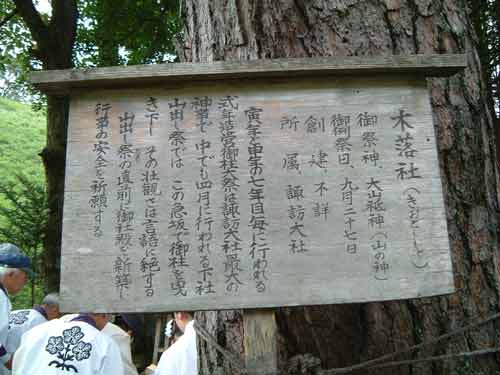 木落社(きおとしし)
御祭神 大山祗神(山の神)
御例祭日、九月二十七日
創建、不詳
所属、諏訪大社
寅年と申年の七年目毎に行われる
式年造営御柱大祭は諏訪大社最大の
神事で、中でも四月に行われる下社
山出し祭では、この急坂で御柱を曳
き下し、その壮観さは言語に絶する
山出し祭の直前に御社殿を新築し
行事の安全を祈願する